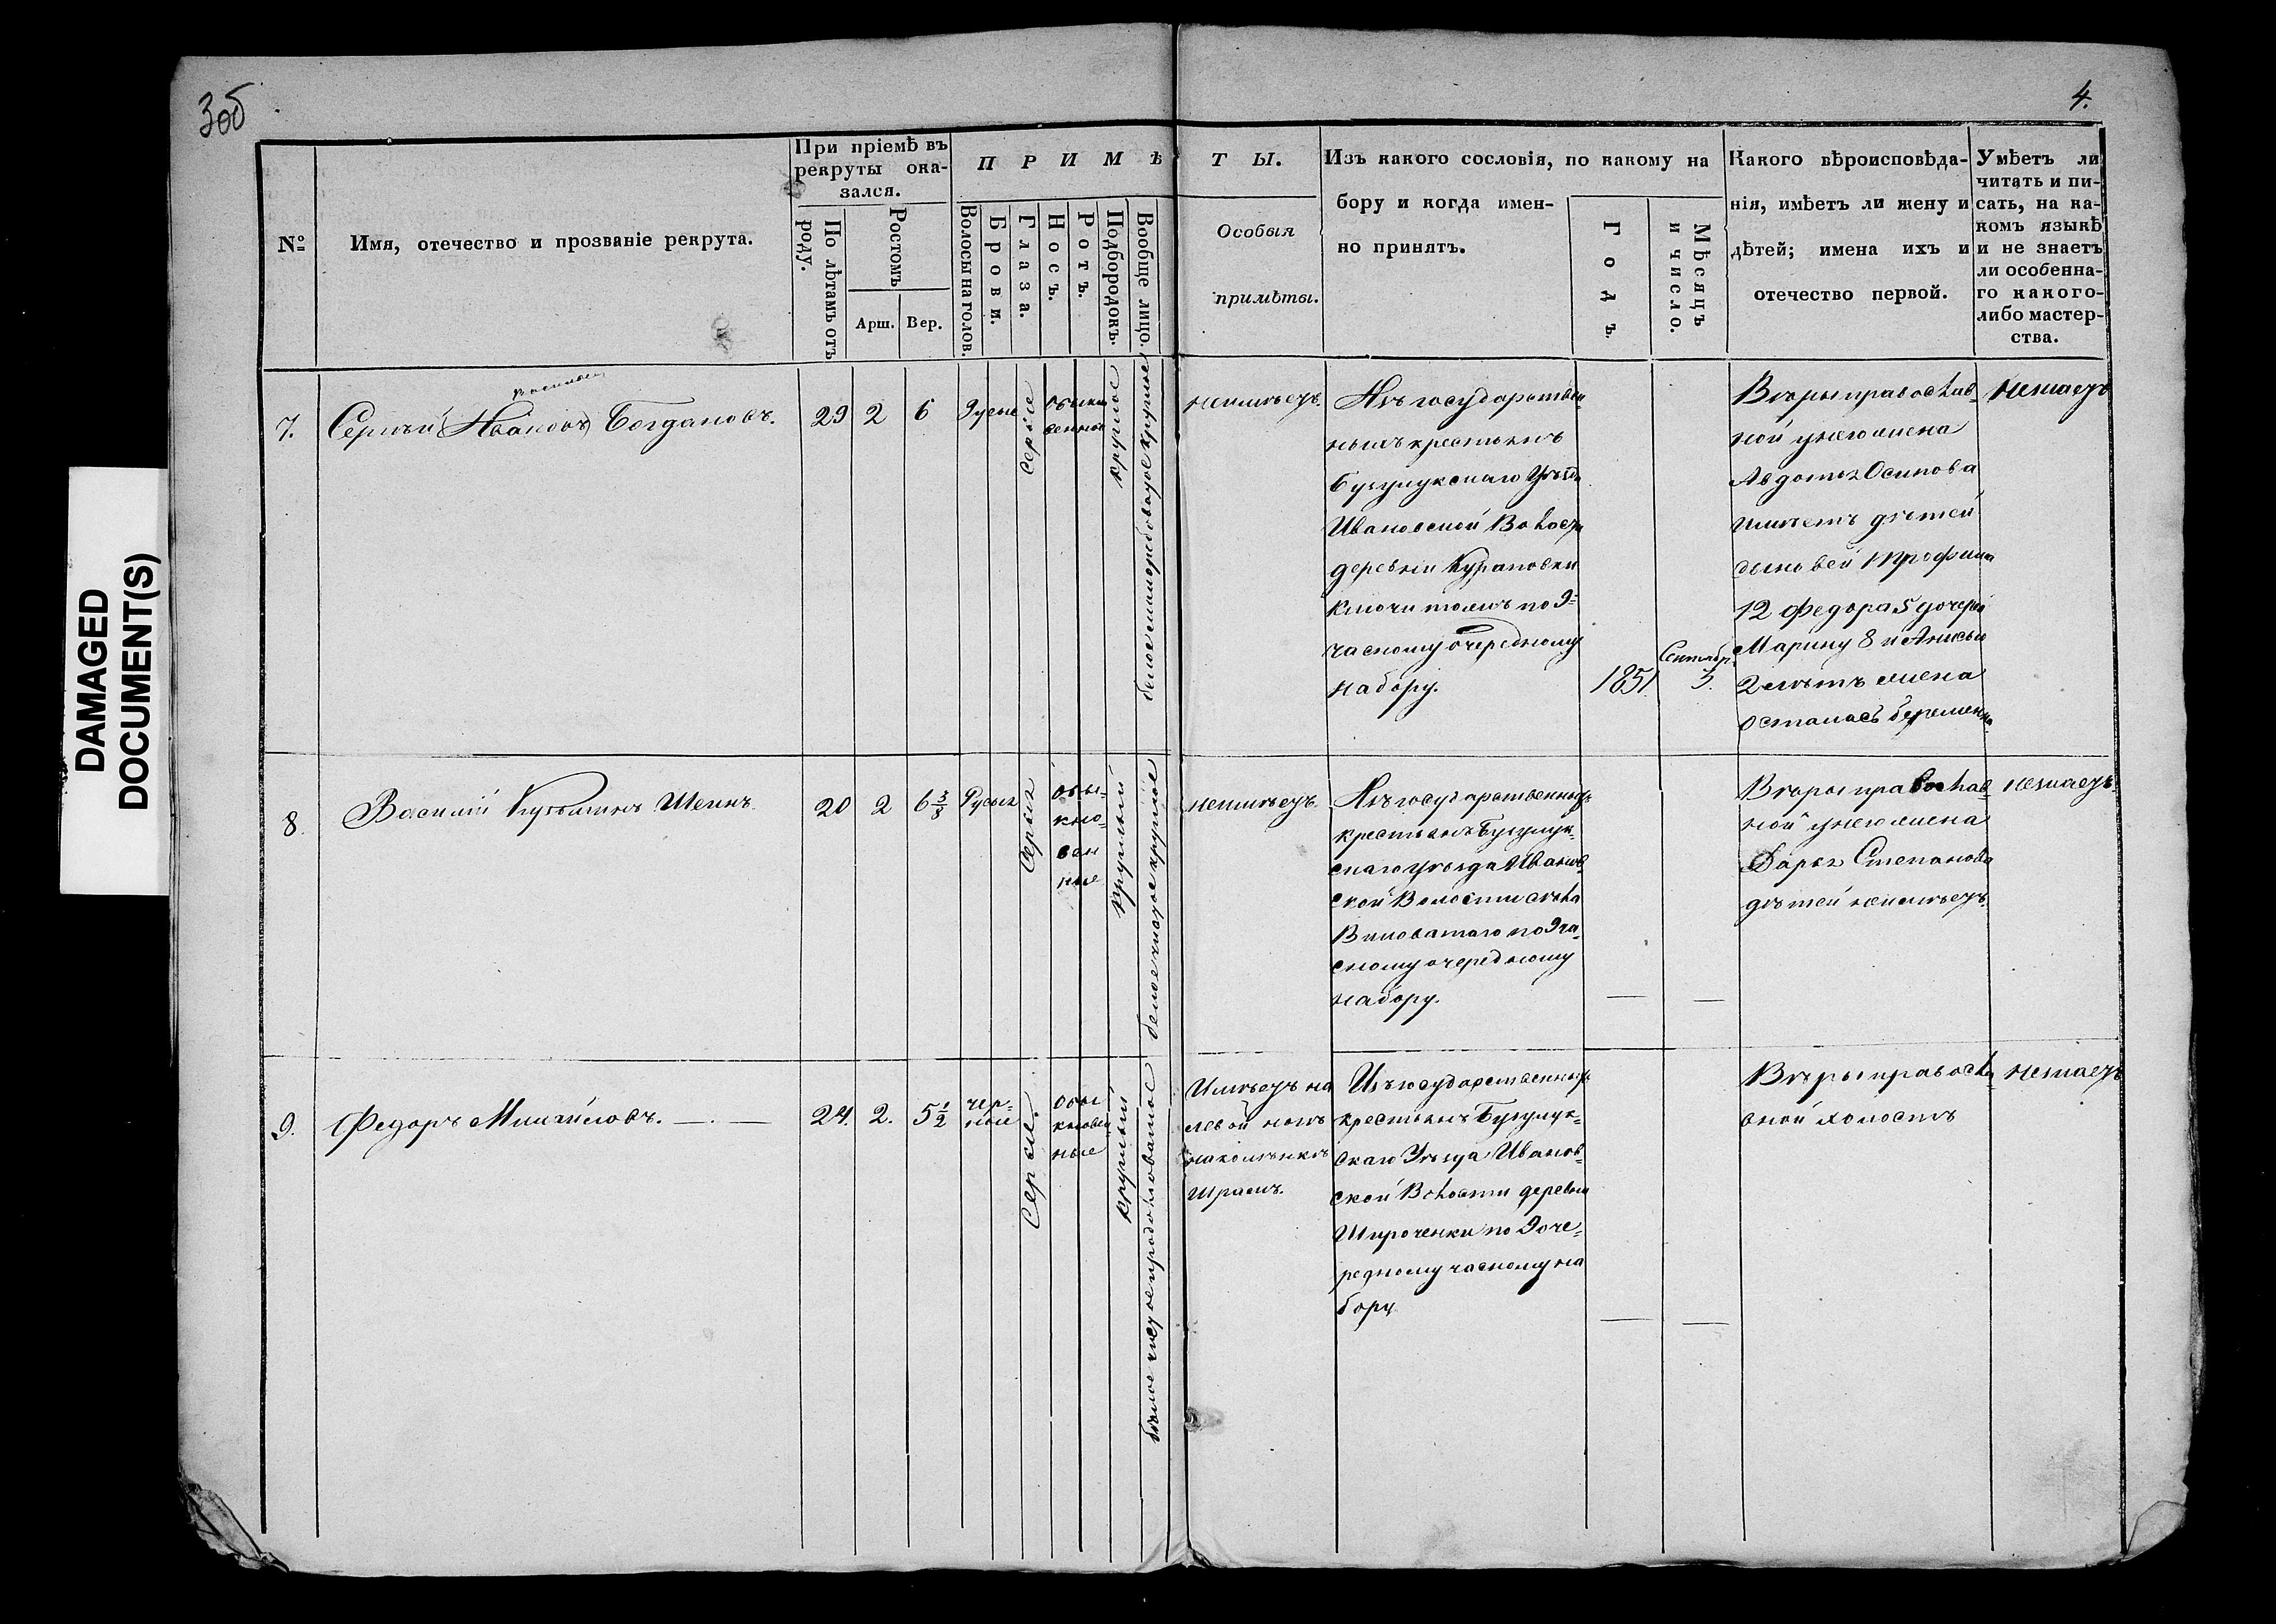 3об
4.
DAMAGED
DOCUMENT(S)
№
Имя, отечество и прозваніе рекрута.
При пріемѣ въ
рекруты ока-
зался.
По лѣтамъ отъ
роду.
Ростомъ
Арш.
Вер.
ПРИМѢ
Волосы на голов.
Брови.
Глаза.
Носъ.
Ротъ.
Подбородокъ.
Вообще лицо.
ТЫ.
Особыя
примѣты.
Изъ какого сословія, по какому на
бору и когда имен-
но принятъ.
Годъ.
Мѣсяцъ
и число.
Какого вѣроисповѣда-
нія, имѣетъ ли жену и
дѣтей; имена ихъ и
отечество первой.
Умѣетъ ли
читать и пи-
сать, на ка-
комъ языкѣ
и не знаетъ
ли особенна-
го какого-
либо мастер-
ства.
7.
Сергѣй (Ивановъ) Богдановъ.
29
2
6
Русые
Серые
Обыкн
венные
круглое
неимѣетъ.
Изъ государствен
ныхъ крестьянъ
Бузулукскаго Уѣзда
Ивановской Волости
деревни
Ключи тожъ по 9=
часному очередному
набору.
1851
Сентябр.
3.
Вѣры православ
ной у него жена
Авдотья Осипова
имѣетъ дѣтей
сыновей Трофима
12 Федора 5 дочерей
Марину 8 и Анисью
2 лѣтъ жена
осталась беременна
незнаетъ
8.
Василій Кузьминъ Шеинъ
20
2
6 3/8
Русые
Серые
Обы-
кно=
вен
ные
круглый
белое чистое круглое
неимѣетъ.
Изъ государственныхъ
крестьянъ Бузулук=
скаго уѣзда Иванов
ской Волости села
Виловатаго по 9 ча=
сному очередному
набору.
—
—
Вѣры православ=
ной у него жена
Дарья Степанова
дѣтей неимѣетъ.
незнаетъ.
9.
Федоръ Михайловъ. —.—
24.
2.
5 1/2
чер=
ные
Серые.
Обы
кновен
ные
круглый
белое чистое продолговатое
Имѣетъ на
левой ноге
наколѣнке
шрамъ.
Изъ государственныхъ
крестьянъ Бузулук=
скаго Уѣзда Иванов=
ской Волости деревни
Широченки по 9 оче=
редному часному на
бору
—
—
Вѣры правосла
вной холостъ
незнаетъ